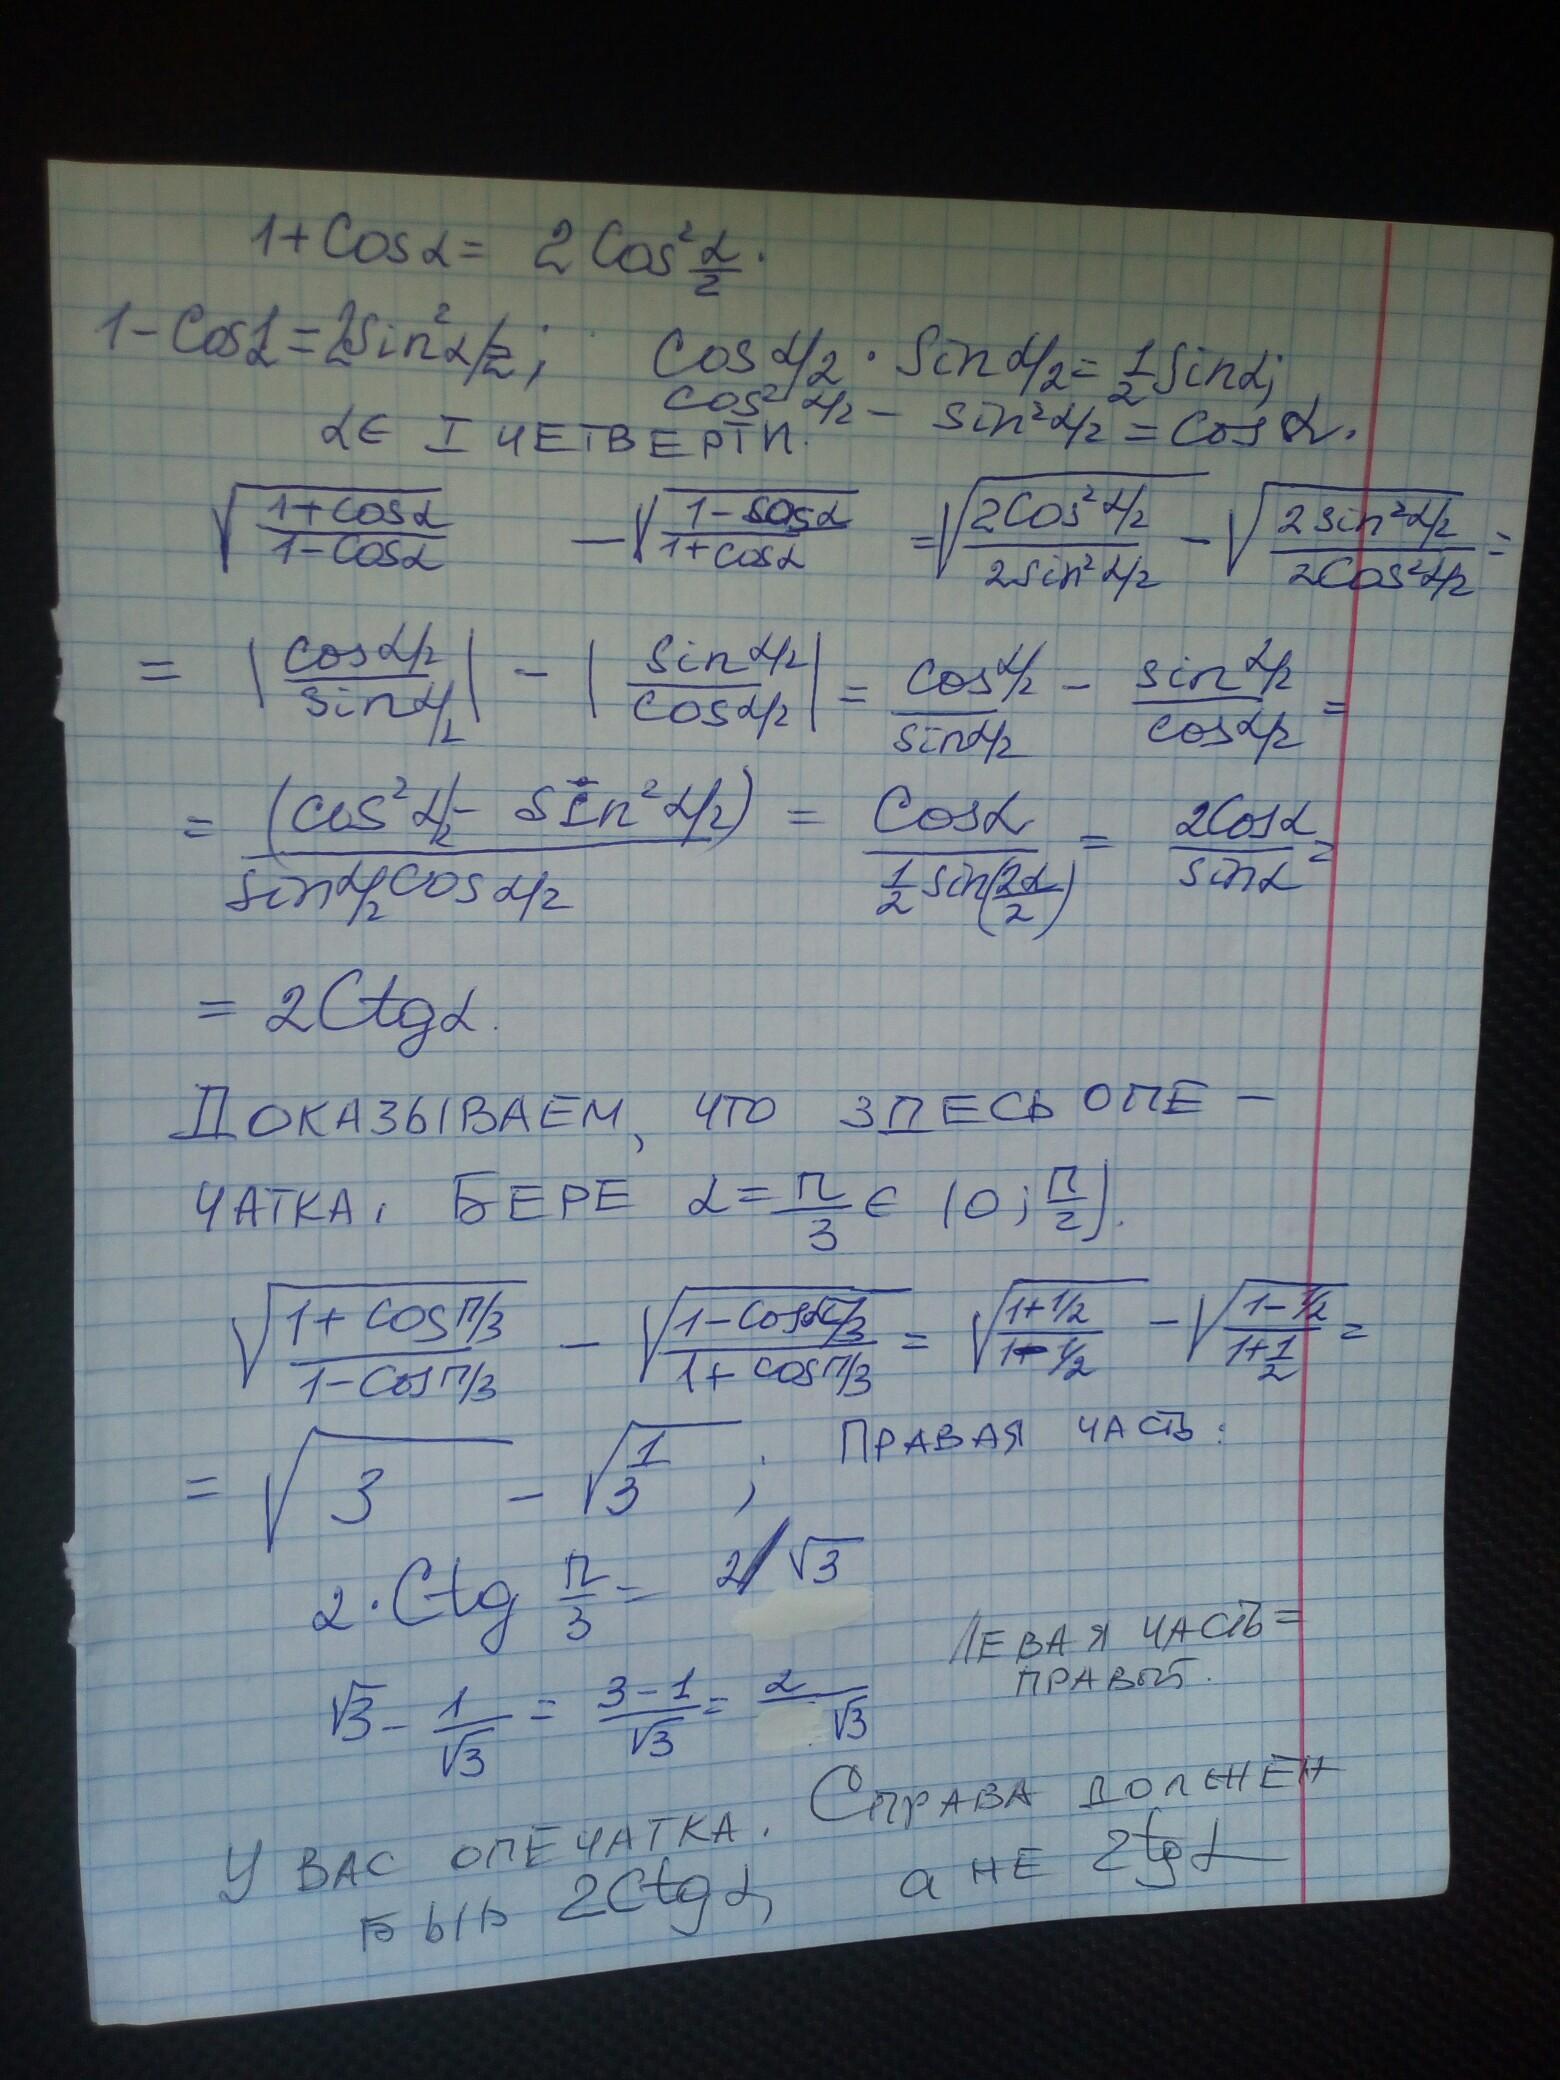 1+Cosα = 2Cos²α/2.
1-Cosα = 2Sin²α/2; Cosα/2 · Sinα/2 = 1/2 Sinα;
cos²α/2 - sin²α/2 = cosα.
α∈ I ЧЕТВЕРТИ.
√((1+cosα)/(1-cosα)) - √((1-cosα)/(1+cosα)) = √((2Cos²α/2)/(2sin²α/2)) - √((2sin²α/2)/(2Cos²α/2)) =
= |cosα/2 / sinα/2| - |sinα/2 / cosα/2| = cosα/2 / sinα/2 - sinα/2 / cosα/2 =
= (cos²α/2 - sin²α/2) / (sinα/2 cosα/2) = Cosα / (1/2 sin(2α/2)) = 2Cosα / sinα =
= 2Ctgα.
ДОКАЗЫВАЕМ, ЧТО ЗДЕСЬ ОПЕ-
ЧАТКА. БЕРЕ α = π/3 ∈ (0; π/2).
√((1+cosπ/3)/(1-cosπ/3)) - √((1-cosπ/3)/(1+cosπ/3)) = √((1+1/2)/(1-1/2)) - √((1-1/2)/(1+1/2)) =
= √3 - √(1/3); ПРАВАЯ ЧАСТЬ:
2·Ctg π/3 = 2/√3
ЛЕВАЯ ЧАСТЬ =
ПРАВОЙ.
√3 - 1/√3 = (3-1)/√3 = 2/√3
У ВАС ОПЕЧАТКА. СПРАВА ДОЛЖЕН
БЫТЬ 2Ctgα, а НЕ 2tgα